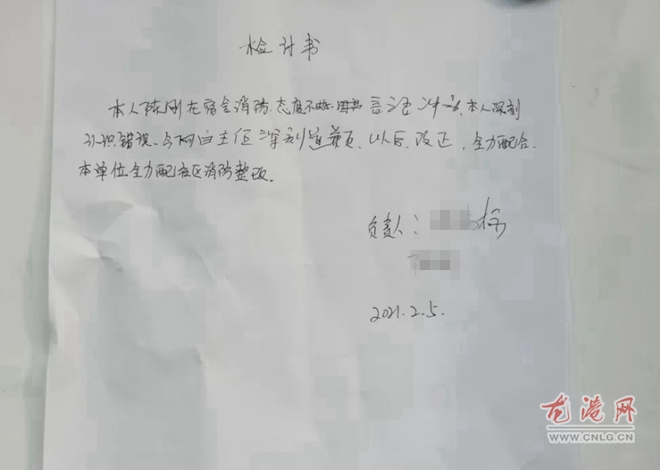 检讨书
本人陈刚在宿舍消防.态度不好.因为言语冲动.本人深刻
认识错误.与阿白主任深刻道歉.以后改正.全力配合.
本单位全力配社区消防整改.
负责人:
2021.2.5.
龙港网
WWW.CNLG.CN